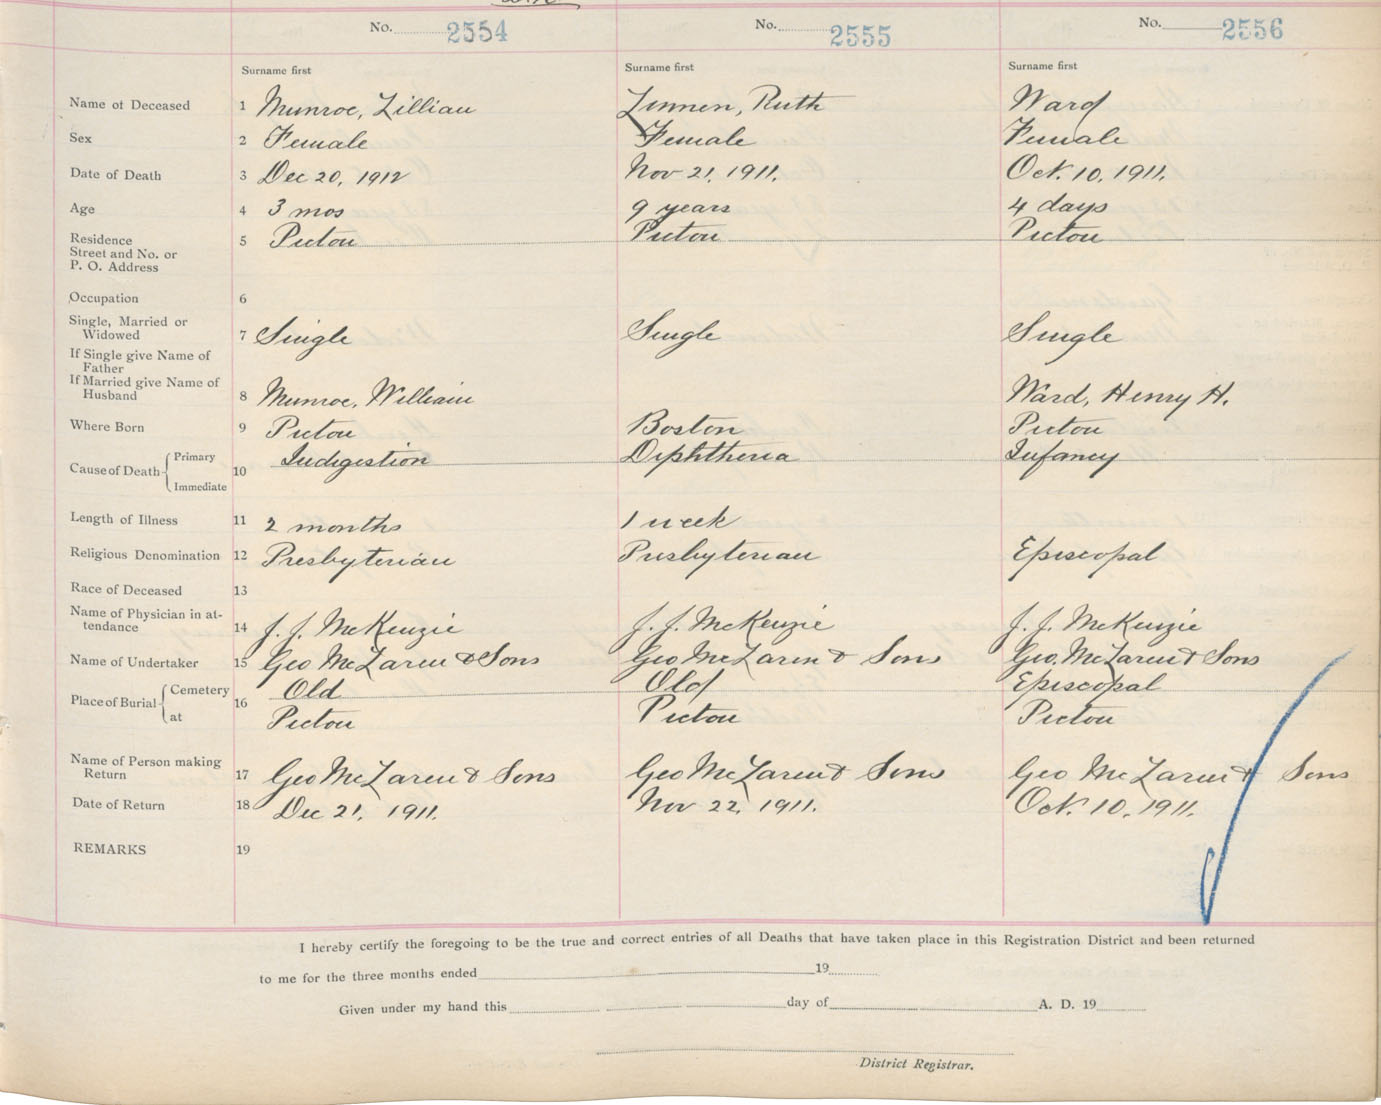 No. 2554 No. 2555 No. 2556
Surname first Surname first Surname first
Name of Deceased 1 Munroe, Lillian Linnen, Ruth Ward
Sex 2 Female Female Female
Date of Death 3 Dec 20, 1912 Nov 21, 1911. Oct. 10, 1911.
Age 4 3 mos 9 years 4 days
Residence 5 Pictou Pictou Pictou
Street and No. or
P. O. Address
Occupation 6
Single, Married or
Widowed 7 Single Single Single
If Single give Name of
Father
If Married give Name of
Husband 8 Munroe, William Ward, Henry H.
Where Born 9 Pictou Boston Pictou
Cause of Death Primary Immediate 10 Indigestion Diphtheria Infancy
Length of Illness 11 2 months 1 week
Religious Denomination 12 Presbyterian Presbyterian Episcopal
Race of Deceased 13
Name of Physician in at-
tendance 14 J. J. McKenzie J. J. McKenzie J. J. McKenzie
Name of Undertaker 15 Geo McLaren & Sons Geo McLaren & Sons Geo. McLaren & Sons
Place of Burial Cemetery 16 Old Old Episcopal
at Pictou Pictou Pictou
Name of Person making
Return 17 Geo McLaren & Sons Geo McLaren & Sons Geo McLaren & Sons
Date of Return 18 Dec 21, 1911. Nov 22, 1911. Oct. 10, 1911.
REMARKS 19
I hereby certify the foregoing to be the true and correct entries of all Deaths that have taken place in this Registration District and been returned
to me for the three months ended 19
Given under my hand this day of A. D. 19
District Registrar.